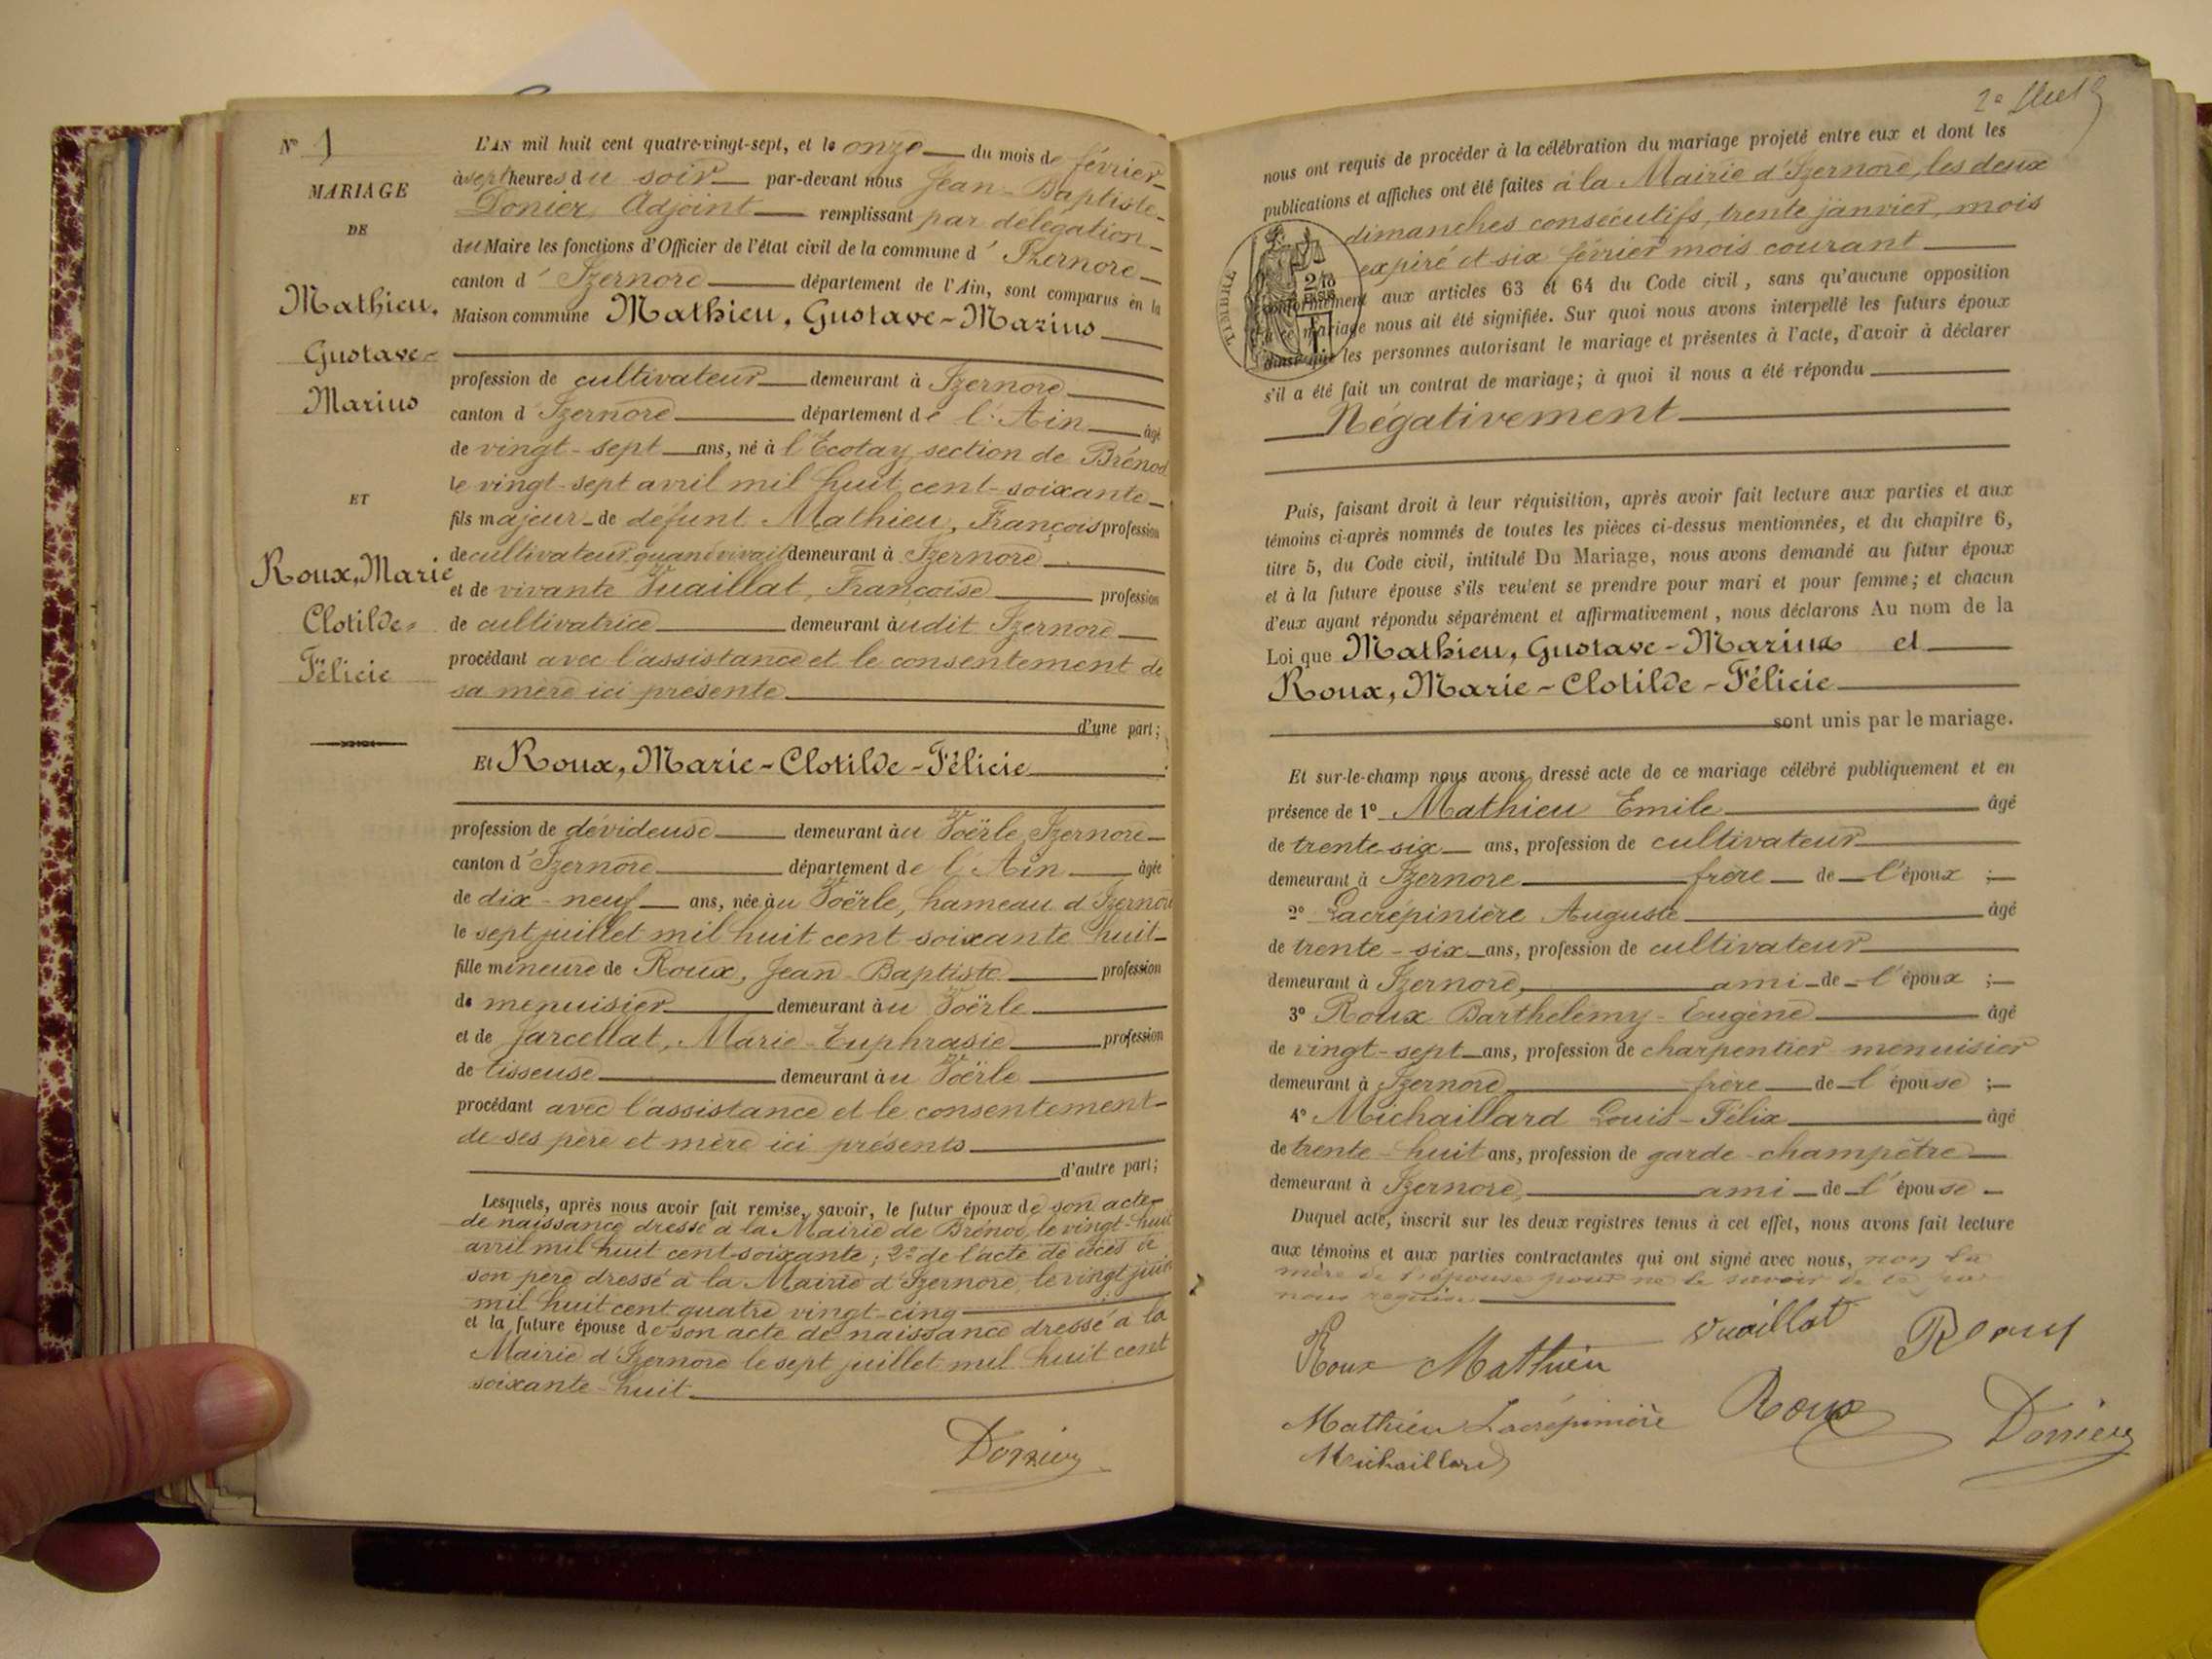 N° 1
MARIAGE
DE
Mathieu,
Gustave-
Marius
ET
Roux, Marie
Clotilde-
Félicie
L'AN mil huit cent quatre-vingt-sept, et le onze du mois de février
à sept heures du soir par-devant nous Jean-Baptiste
Donier, Adjoint remplissant par délégation
du Maire les fonctions d'Officier de l'état civil de la commune d'Izernore
canton d'Izernore département de l'Ain, sont comparus en la
Maison commune Mathieu, Gustave-Marius
profession de cultivateur demeurant à Izernore
canton d'Izernore département de l'Ain âgé
de vingt-sept ans, né à l'Ecotay section de Brénod
le vingt-sept avril mil huit cent-soixante
fils majeur de défunt Mathieu, François profession
de cultivateur quand vivait demeurant à Izernore
et de vivante Vuaillat, Françoise profession
de cultivatrice demeurant audit Izernore
procédant avec l'assistance et le consentement de
sa mère ici présente
d'une part;
Et Roux, Marie-Clotilde-Félicie
profession de dévideuse demeurant au Voërle, Izernore
canton d'Izernore département de l'Ain âgée
de dix-neuf ans, née au Voërle, hameau d'Izernore
le sept juillet mil huit cent soixante huit
fille mineure de Roux, Jean-Baptiste profession
de menuisier demeurant au Voërle
et de Jarcellat, Marie-Euphrasie profession
de tisseuse demeurant au Voërle
procédant avec l'assistance et le consentement
de ses père et mère ici présents
d'autre part;
Lesquels, après nous avoir fait remise, savoir, le futur époux de son acte
de naissance dressé à la Mairie de Brénod, le vingt-huit
avril mil huit cent soixante; 2° de l'acte de décès de
son père dressé à la Mairie d'Izernore, le vingt juin
mil huit cent quatre vingt-cinq
et la future épouse de son acte de naissance dressé à la
Mairie d'Izernore le sept juillet mil huit cent
soixante-huit
Donier
nous ont requis de procéder à la célébration du mariage projeté entre eux et dont les
publications et affiches ont été faites à la Mairie d'Izernore, les deux
dimanches consécutifs, trente janvier, mois
expiré et six février mois courant
TIMBRE
conformément aux articles 63 et 64 du Code civil, sans qu'aucune opposition
à ce mariage nous ait été signifiée. Sur quoi nous avons interpellé les futurs époux
ainsi que les personnes autorisant le mariage et présentes à l'acte, d'avoir à déclarer
s'il a été fait un contrat de mariage; à quoi il nous a été répondu
Négativement
Puis, faisant droit à leur réquisition, après avoir fait lecture aux parties et aux
témoins ci-après nommés de toutes les pièces ci-dessus mentionnées, et du chapitre 6,
titre 5, du Code civil, intitulé Du Mariage, nous avons demandé au futur époux
et à la future épouse s'ils veulent se prendre pour mari et pour femme; et chacun
d'eux ayant répondu séparément et affirmativement, nous déclarons Au nom de la
Loi que Mathieu, Gustave-Marius et
Roux, Marie-Clotilde-Félicie
sont unis par le mariage.
Et sur-le-champ nous avons dressé acte de ce mariage célébré publiquement et en
présence de 1° Mathieu Emile âgé
de trente-six ans, profession de cultivateur
demeurant à Izernore frère de l'époux ;
2° Lacrépinière Auguste âgé
de trente-six ans, profession de cultivateur
demeurant à Izernore, ami de l'époux ;
3° Roux Barthélemy-Eugène âgé
de vingt-sept ans, profession de charpentier menuisier
demeurant à Izernore frère de l'épouse ;
4° Michaillard Louis-Félix âgé
de trente-huit ans, profession de garde-champêtre
demeurant à Izernore, ami de l'épouse
Duquel acte, inscrit sur les deux registres tenus à cet effet, nous avons fait lecture
aux témoins et aux parties contractantes qui ont signé avec nous, non la
mère de l'épouse pour ne le savoir de ce par
nous requise.
Roux Mathieu Vuaillat Roux
Mathieu Lacrépinière Roux Donier
Michaillard